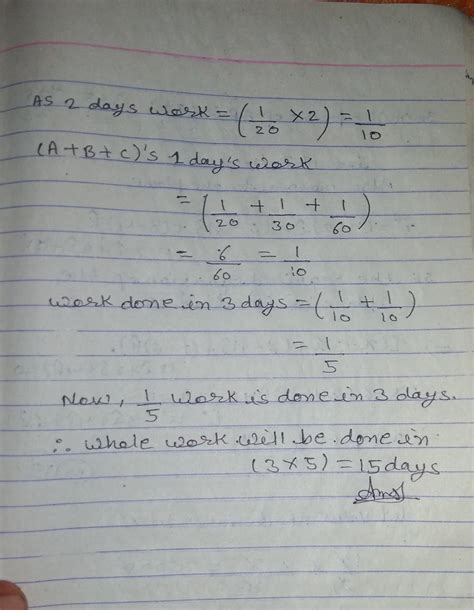 As 2 days work = (1/20 × 2) = 1/10
(A+B+C)'s 1 day's work
= (1/20 + 1/30 + 1/60)
= 6/60 = 1/10
work done in 3 days = (1/10 + 1/10)
= 1/5
Now, 1/5 work is done in 3 days.
∴ whole work will be done in
(3×5) = 15 days
Ans